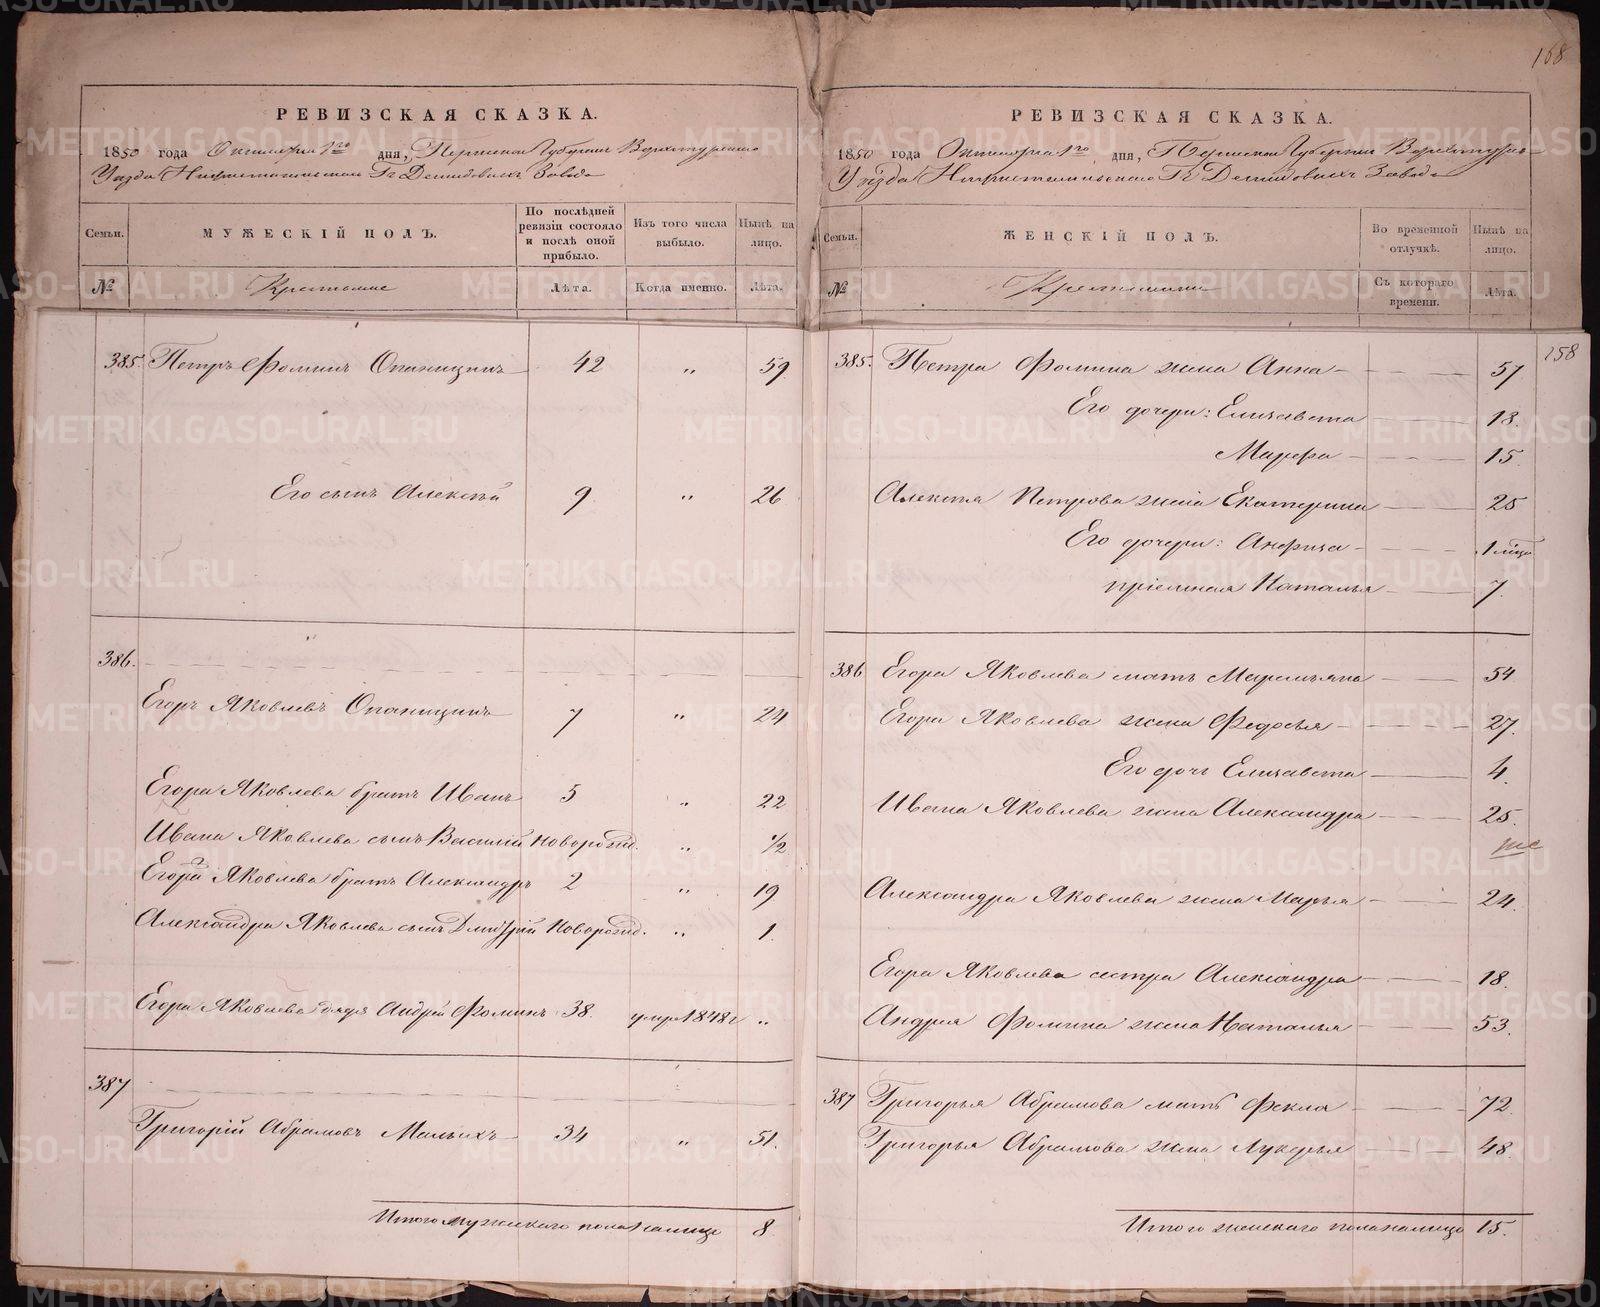 168
РЕВИЗСКАЯ СКАЗКА.
1850 года Октября 1го дня, Пермской Губернии Верхотурскаго
Уезда Нижнетагильскаго Гг Демидовыхъ Завода
Семьи.
МУЖЕСКІЙ ПОЛЪ.
По послѣдней ревизіи состояло и послѣ оной прибыло.
Изъ того числа выбыло.
Нынѣ на лицо.
№
Крестьяне
Лѣта.
Когда именно.
Лѣта.
385. Петръ Фоминъ Опаницинъ 42 „ 59
Его сынъ Алексѣй 9 „ 26
386.
Егоръ Яковлевъ Опаницинъ 7 „ 24
Егора Яковлева братъ Иванъ 5 „ 22
Ивана Яковлева сынъ Василій новорожд. „ 1/2
Егора Яковлева 2 братъ Александръ 2 „ 19
Александра Яковлева сынъ Дмитрій новорожд. „ 1.
Егора Яковлева дядя Андрей Фоминъ 38. умре 1848 г „
387
Григорій Абрамовъ Малыхъ 34 „ 51.
Итого мужескаго пола налицо 8
РЕВИЗСКАЯ СКАЗКА.
1850 года Октября 1го дня, Пермской Губернии Верхотурск
Уѣзда Нижнетагильскаго Гг Демидовыхъ Завода
Семьи.
ЖЕНСКІЙ ПОЛЪ.
Во временной отлучкѣ.
Нынѣ на лицо.
№
Крестьянки
Съ котораго времени.
Лѣта.
158
385. Петра Фомина жена Анна 57
Его дочери: Елизавета 18.
Марфа 15
Алексѣя Петрова жена Екатерина 25
Его дочери: Анфиса 1 мѣся
пріемная Наталья 7.
386 Егора Яковлева мать Маремьяна 54
Егора Яковлева жена Федосья 27.
Его дочь Елизавета 4.
Ивана Яковлева жена Александра 25.
Александра Яковлева жена Марья 24.
Егора Яковлева сестра Александра 18.
Андрея Фомина жена Наталья 53.
387 Григорья Абрамова мать Фекла 72.
Григорья Абрамова жена Лукерья 48.
Итого женскаго пола налицо 15.
METRIKI.GASO-URAL.RU